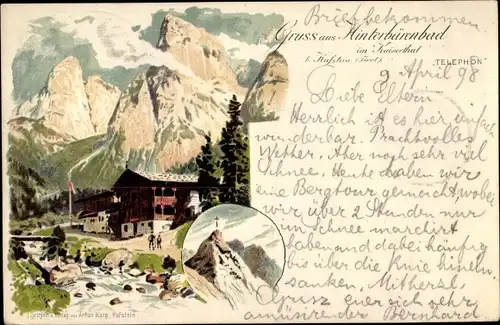 Brief bekommen
Gruss aus Hinterbärenbad
im Kaiserthal
b. Kufstein (Tirol)
"TELEPHON"
9 April 98
Liebe Eltern
Herrlich ist es hier, einfach
wunderbar. Prachtvolles
Wether. Aber noch sehr viel
Schnee. Heute haben wir
eine Bergtour gemacht, wobei
wir über 2 Stunden nur
im Schnee marschirt
haben und dabei häufig
bis über die Knie hinein
sanken. Mitherzl.
Gruss euer sich sehr
amüsirender Bernhard
Eigenthum u. Verlag von Anton Karg, Kufstein